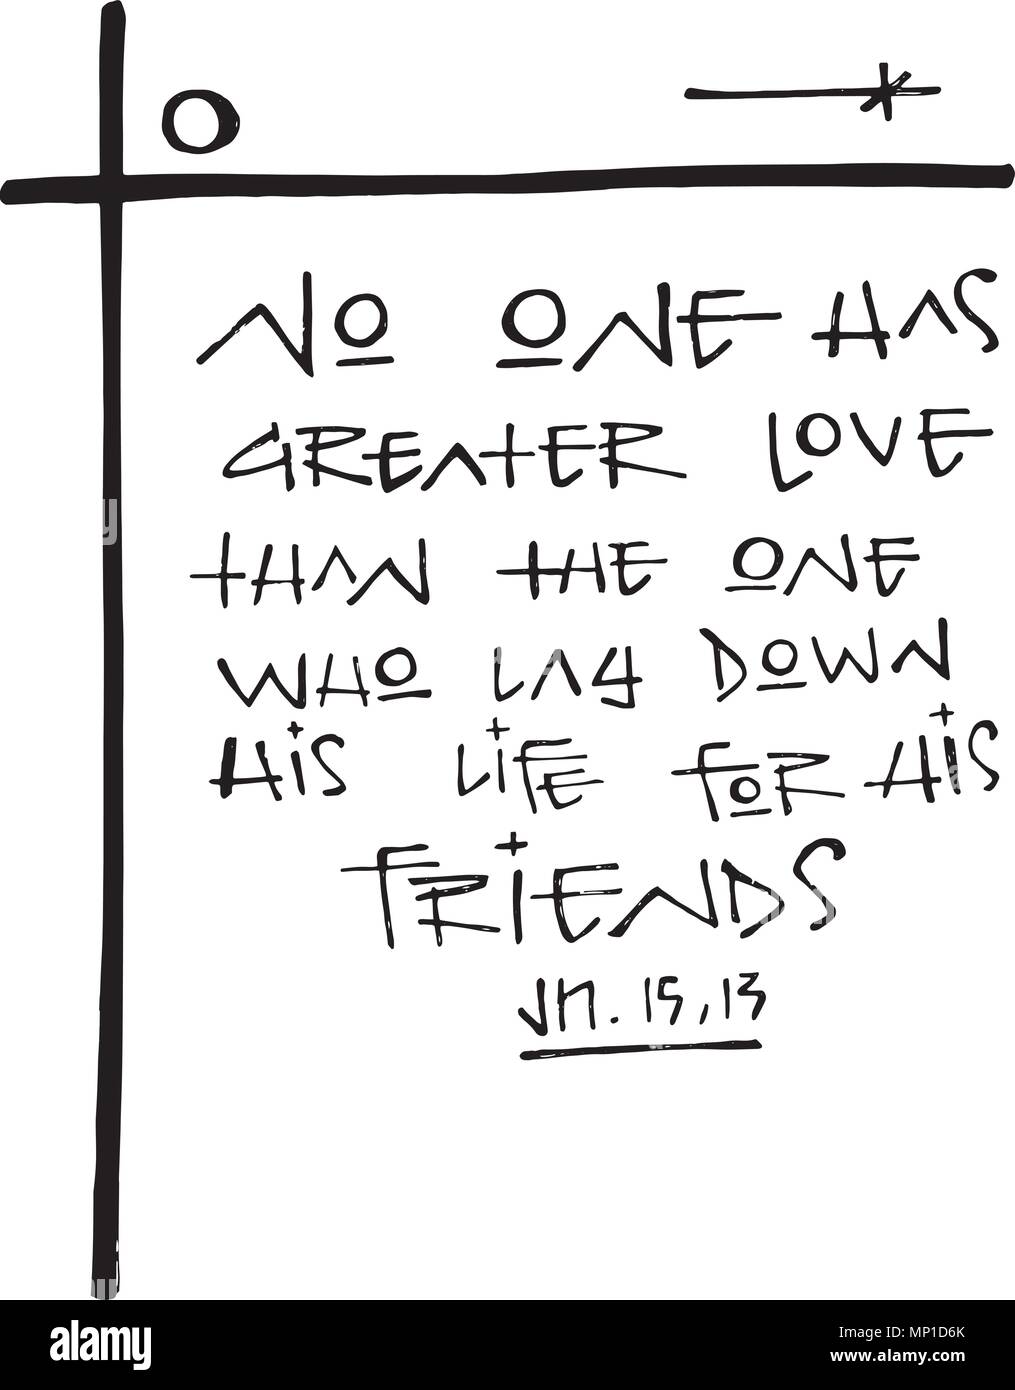 NO ONE HAS
GREATER LOVE
THAN THE ONE
WHO LAY DOWN
HIS LIFE FOR HIS
FRIENDS
JN. 15,13
alamy
Image ID: MP1D6K
www.alamy.com